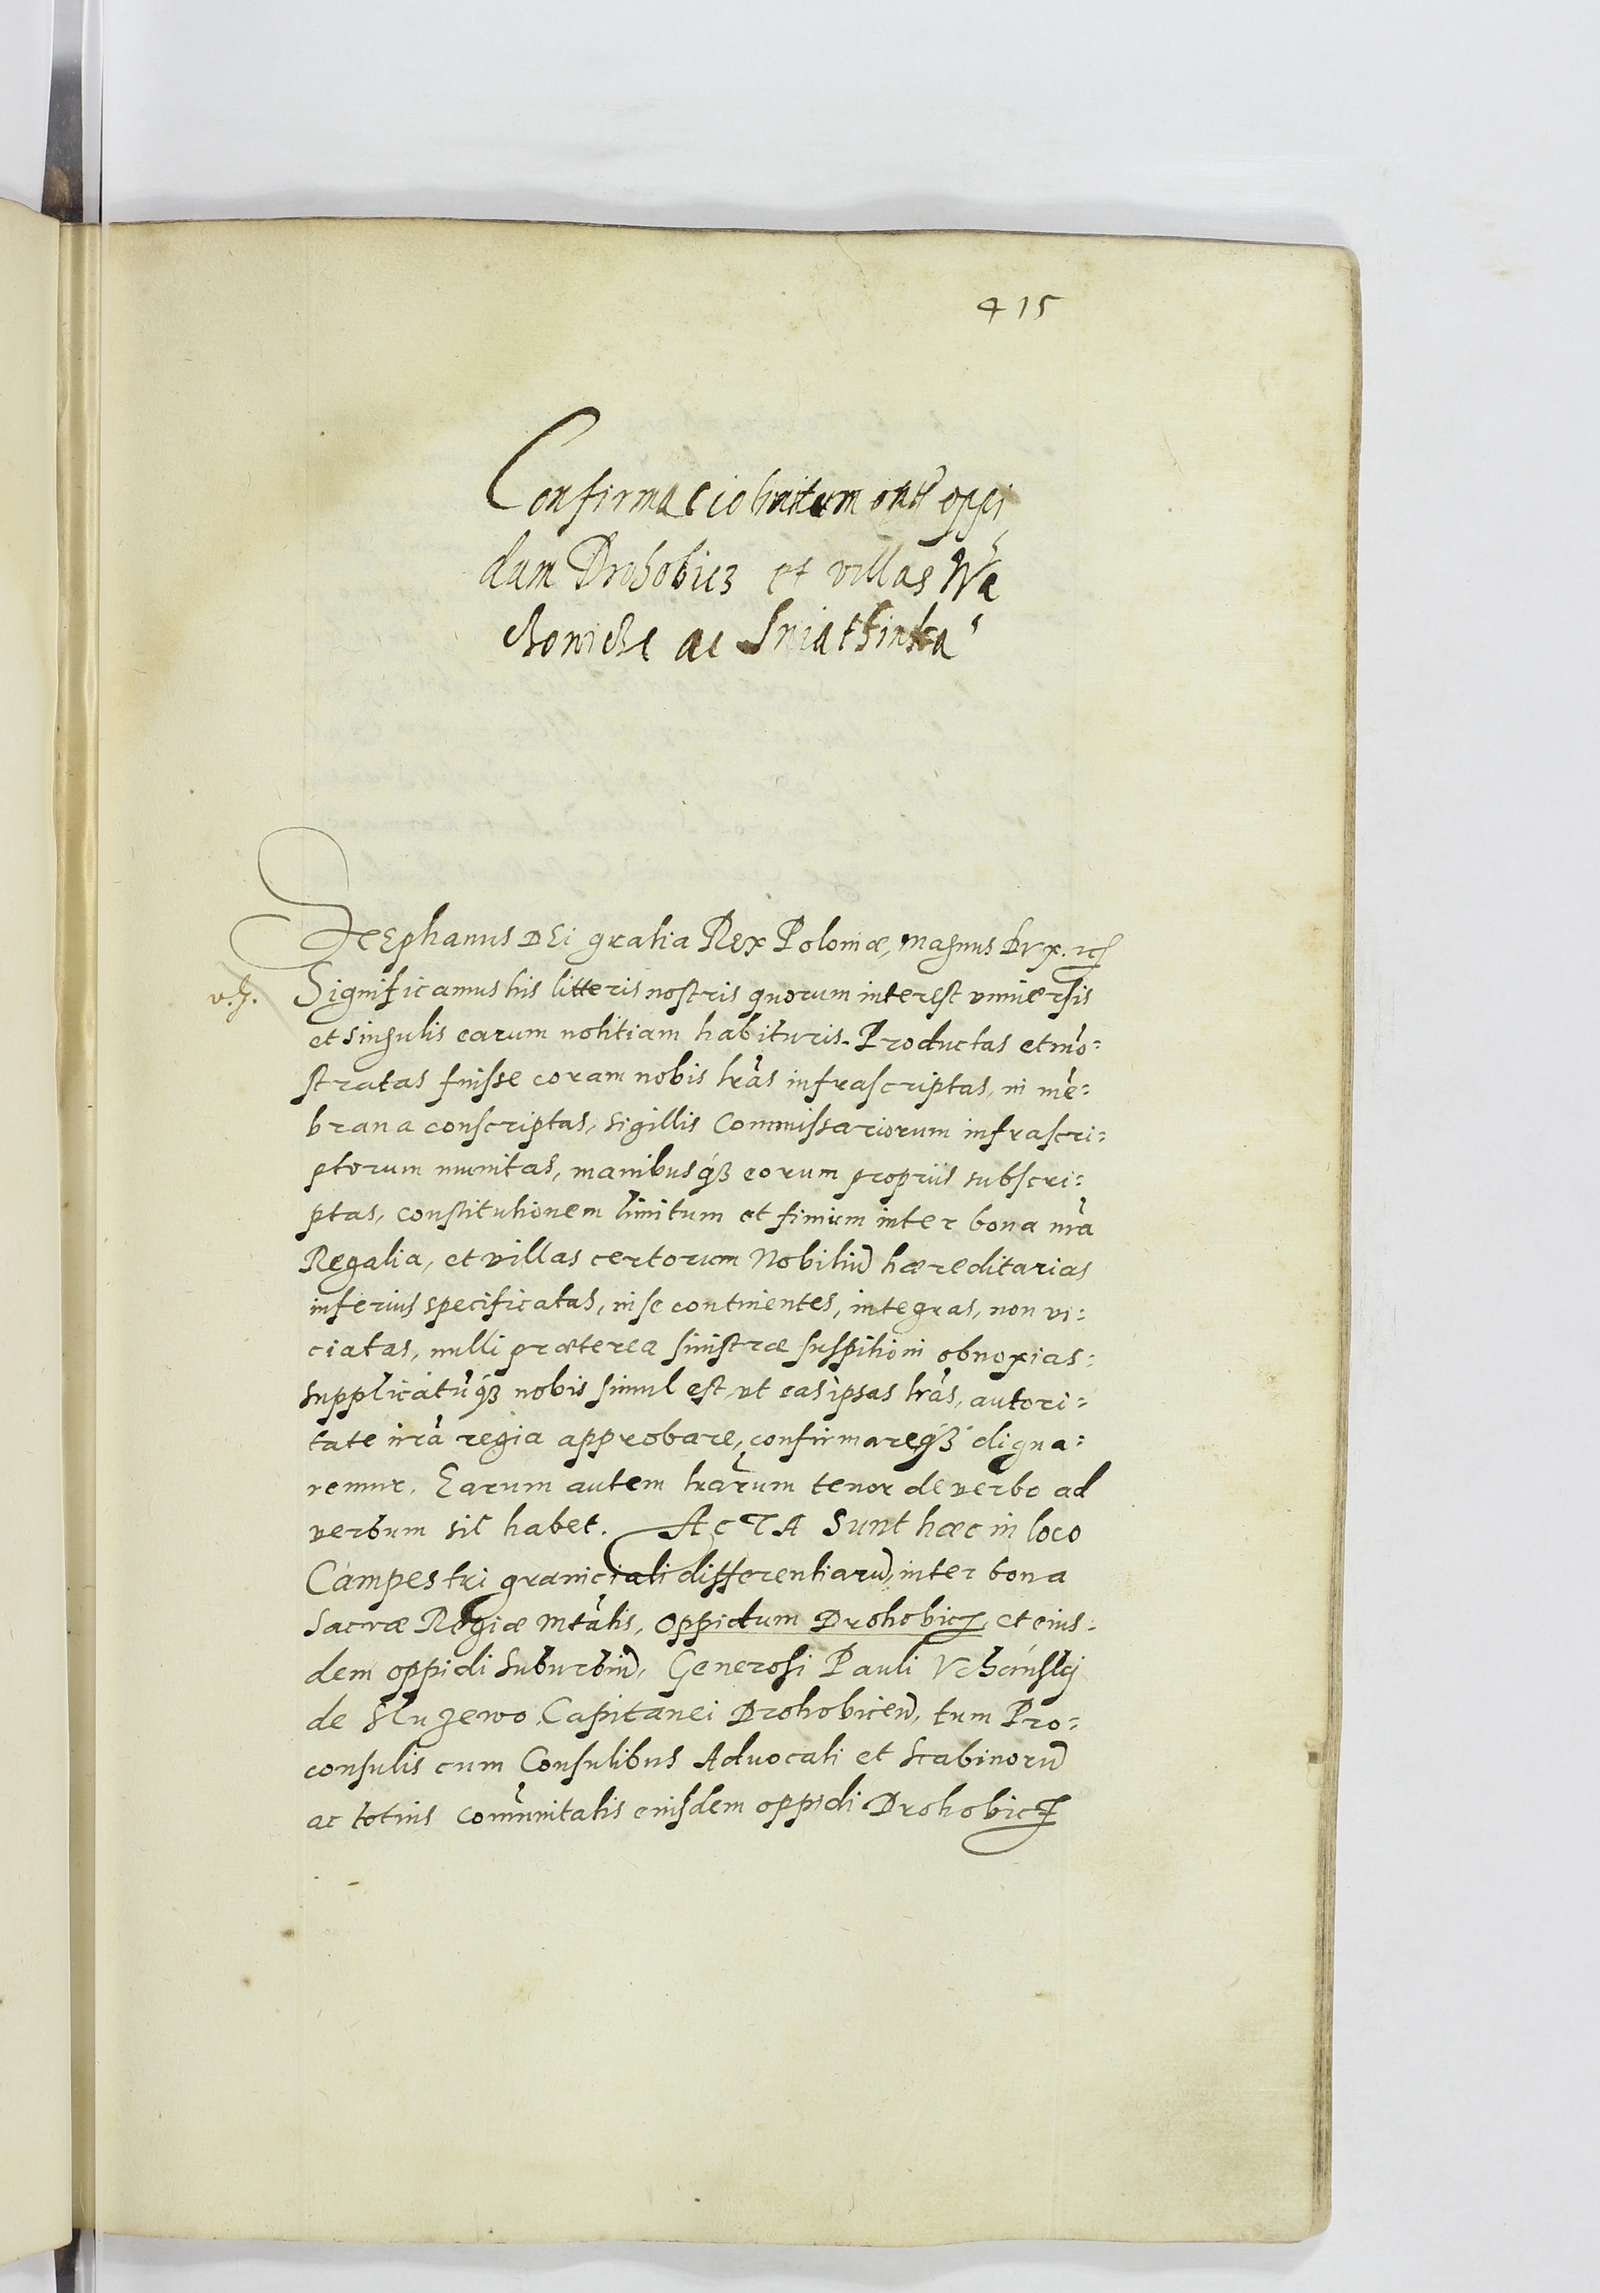 415
Confirmacio limitum int̃ oppi
dum Drohobicz et villas Wa
choniche ac Sniathinka
Stephanus DEi gratia Rex Poloniæ, Magnus Dvx. etc
v.J.
Significamus his litteris nostris quorum interest vniuersis
et singulis earum notitiam habituris. Productas et mõ=
stratas fuisse coram nobis lr̃as infrascriptas, in mẽ=
brana conscriptas, sigillis Commissariorum infrascri=
ptorum munitas, manibusq́ꝫ eorum proprijs subscri=
ptas, constitutionem limitum et finium inter bona nr̃a
Regalia, et villas certorum Nobiliũ hæreditarias
inferius specificatas, in se continentes, integras, non vi=
ciatas, nulli præterea sinistræ suspitioni obnoxias:
supplicatũq́ꝫ nobis simul est, vt eas ipsas lr̃as, autori=
tate nr̃a regia approbare, confirmareq́ꝫ digna=
remur. Earum autem lr̃arum tenor de verbo ad
verbum sic habet. ACTA Sunt hæc in loco
Campestri graniciali differentiarũ, inter bona
Sacræ Regiæ Mtãtis, Oppidum Drohobicz, et eius=
dem oppidi Suburbiũ, Generosi Pauli Vchański
de Służewo Capitanei Drohobiceñ, tum Pro=
consulis cum Consulibus Aduocati et Scabinorũ
ac totius com̃unitatis eiusdem oppidi Drohobicz